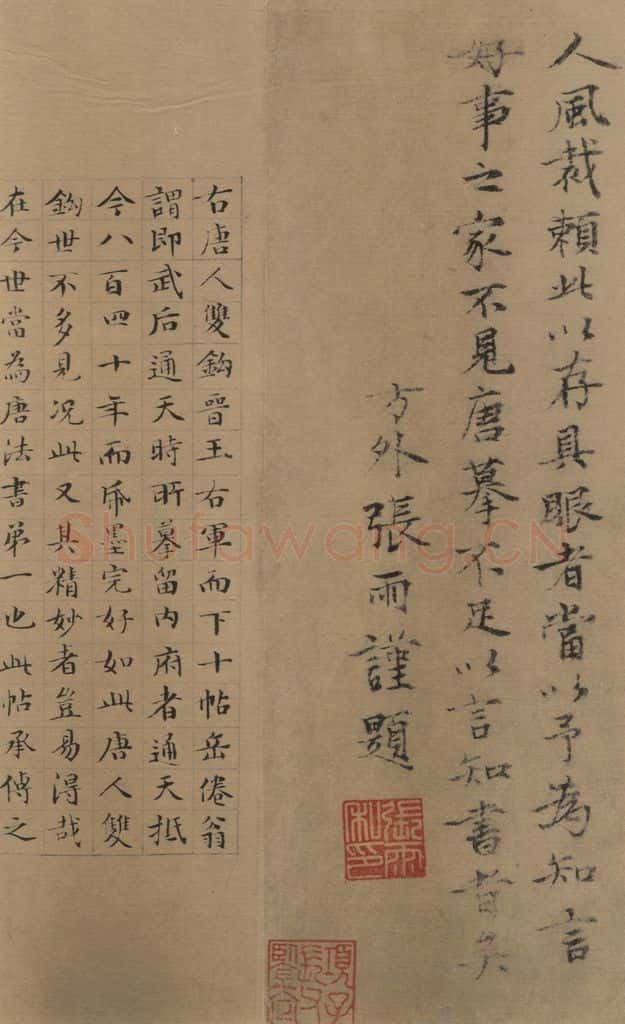 人風裁賴此以存具眼者當以予為知言
好事之家不見唐摹不足以言知書者矣
方外張雨謹題
張雨私印
項子長父鑒定
右唐人雙鉤晉王右軍而下十帖岳倦翁
謂即武后通天時所摹留內府者通天抵
今八百四十年而紙墨完好如此唐人雙
鉤世不多見况此又其精妙者豈易得哉
在今世當為唐法書第一也此帖承傳之
Shufawang.CN